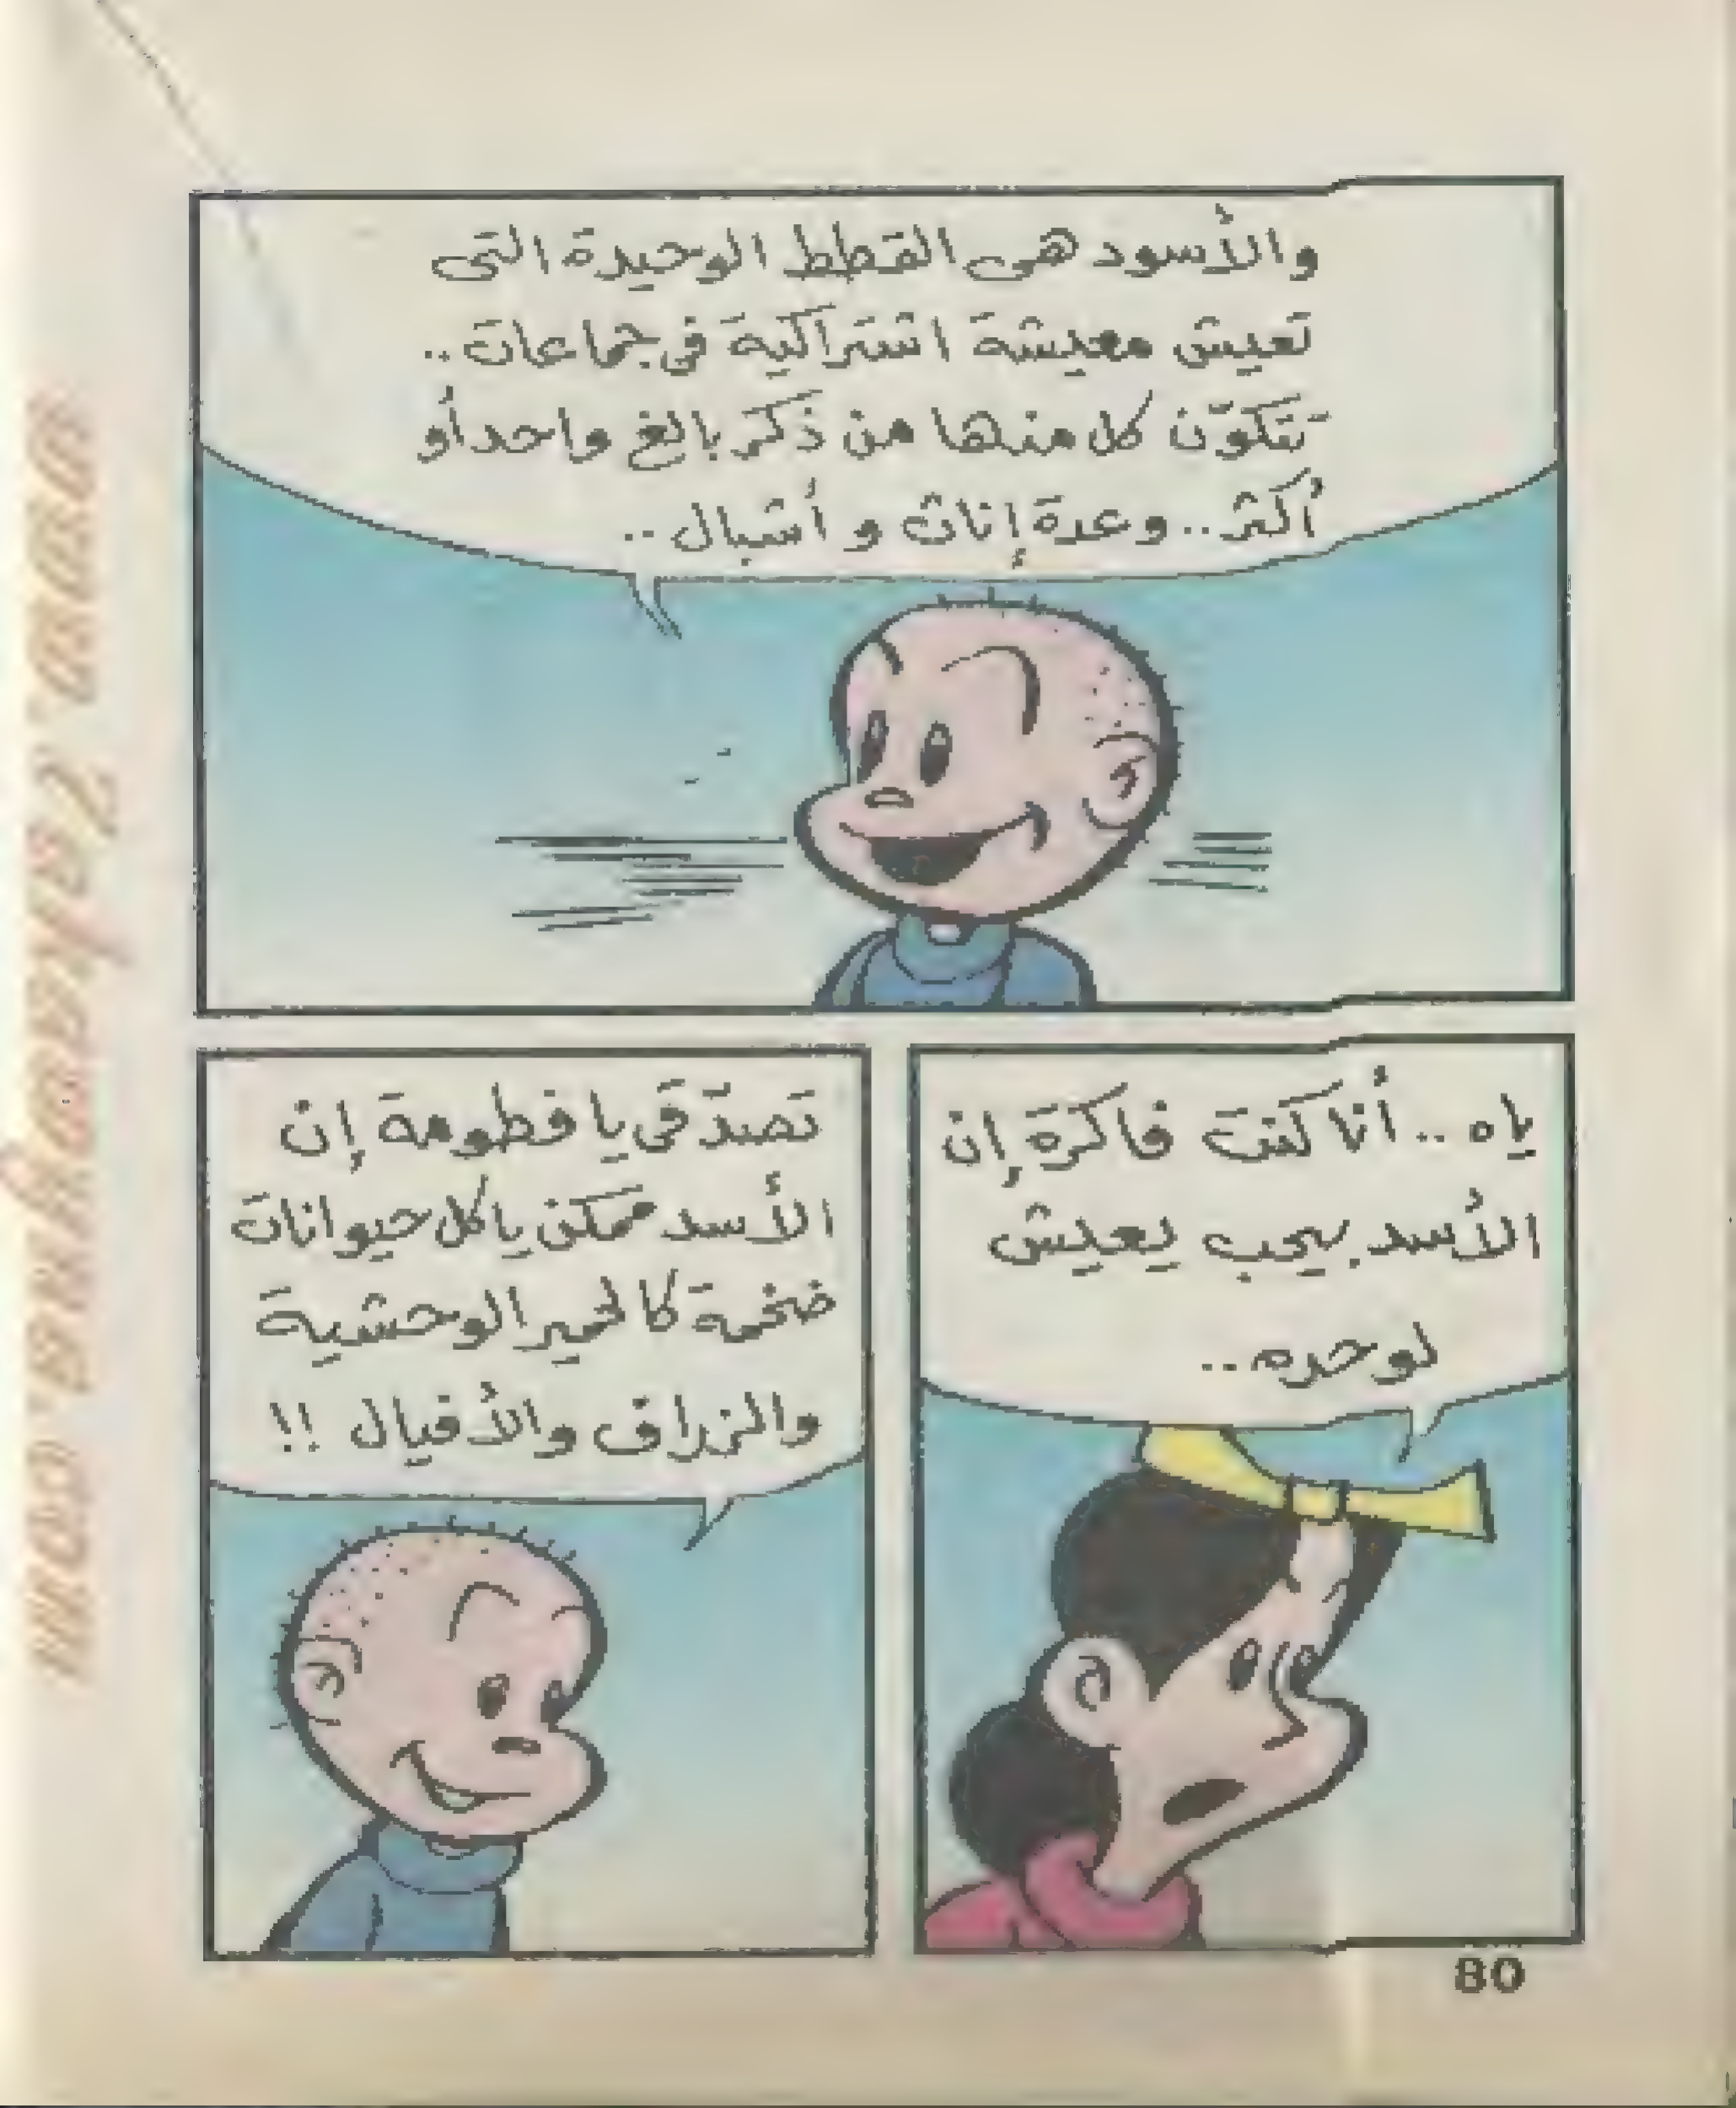 والأسود هى القطط الوحيدة التى
تعيش معيشة اشتراكية فى جماعات..
تتكوّن كل منها من ذكر بالغ واحد أو
أكثر.. وعدة إناث و أشبال..
ياه.. أنا كنت فاكرة إن
الأسد بيحب يعيش
لوحده..
تصدّقى يا فطومة إن
الأسد ممكن ياكل حيوانات
ضخمة كالحمير الوحشية
والزراف والأفيال !!
80